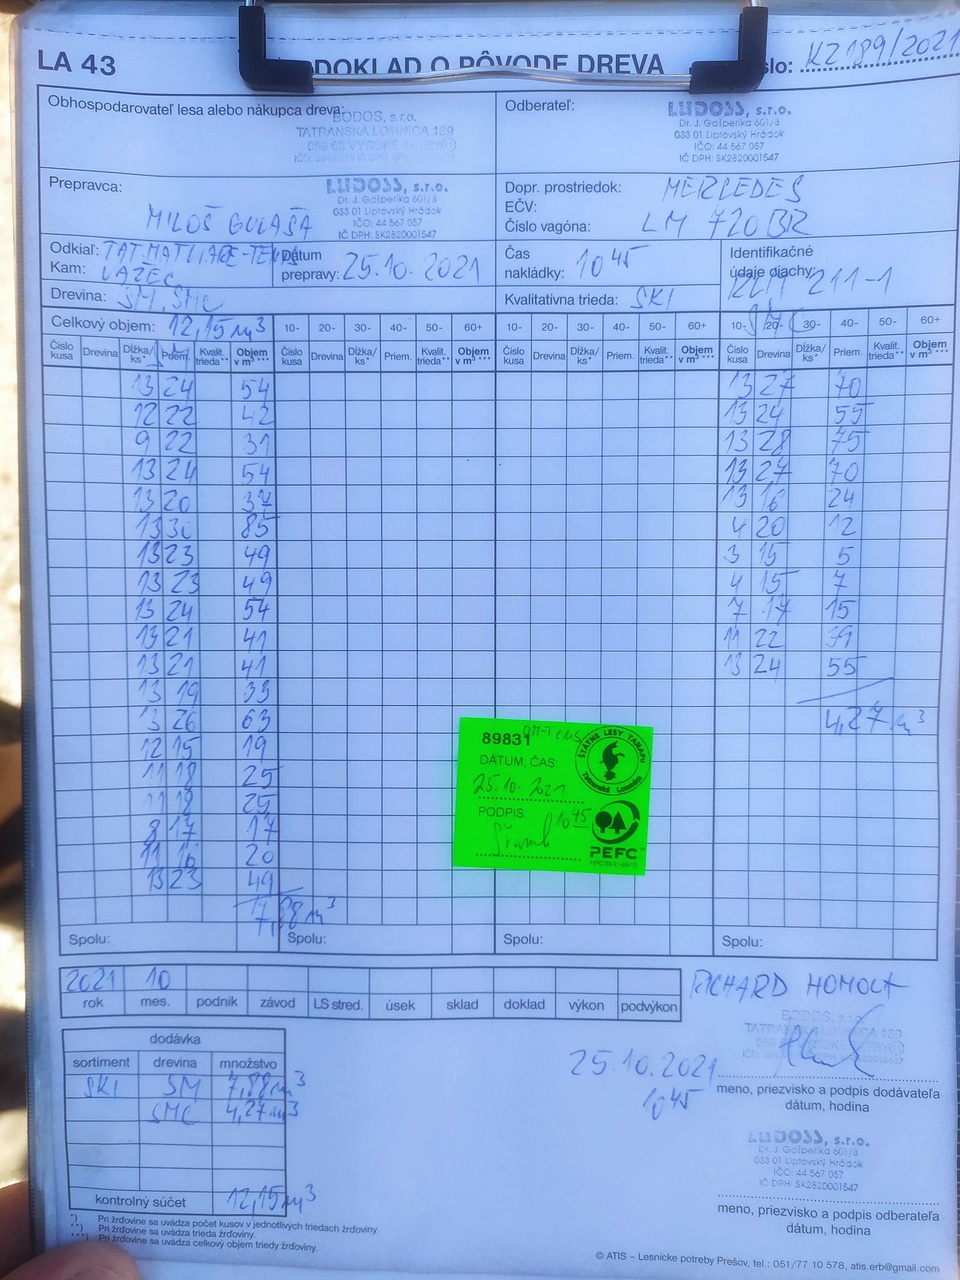 LA 43
DOKLAD O PÔVODE DREVA
číslo: KZ 189/2021
Obhospodarovateľ lesa alebo nákupca dreva:
BODOS, s.r.o.
TATRANSKÁ LOMNICA 139
059 60 VYSOKÉ TATRY
Odberateľ:
LUDOSS, s.r.o.
Dr. J. Gašperíka 601/8
033 01 Liptovský Hrádok
IČO: 44 567 057
IČ DPH: SK2820001547
Prepravca:
MILOŠ GULAŠA
LUDOSS, s.r.o.
Dr. J. Gašperíka 601/8
033 01 Liptovský Hrádok
IČO: 44 567 057
IČ DPH: SK2820001547
Dopr. prostriedok: MERCEDES
EČV:
Číslo vagóna: LM 720BR
Odkiaľ: TAT.MATLIARE-
Kam: VAZEC
Dátum prepravy: 25.10.2021
Čas nakládky: 10 45
Identifikačné údaje plachy: 211-1
Drevina: SM, SMC
Kvalitatívna trieda: SKI
Celkový objem: 12,15 m³
10- 20- 30- 40- 50- 60+ 10- 20- 30- 40- 50- 60+ 10- 20- 30- 40- 50- 60+
Číslo kusa Drevina Dĺžka/ks* Priem. Kvalit. trieda** Objem v m³ *** Číslo kusa Drevina Dĺžka/ks* Priem. Kvalit. trieda** Objem v m³ *** Číslo kusa Drevina Dĺžka/ks* Priem. Kvalit. trieda** Objem v m³ *** Číslo kusa Drevina Dĺžka/ks* Priem. Kvalit. trieda** Objem v m³ ***
13 24 54 13 27 70
12 22 42 13 24 55
9 22 31 13 28 75
13 24 54 13 27 70
13 20 37 13 16 24
13 30 85 4 20 12
13 23 49 3 15 5
13 23 49 4 15 7
13 24 54 7 17 15
13 21 41 11 22 39
13 21 41 13 24 55
13 19 33
4,27 m³
13 26 63
12 15 19
11 18 25
11 18 25
8 17 17
11 16 20
13 23 49
7,88 m³
89831
DÁTUM, ČAS:
25.10.2021
10 45
PODPIS:
ŠTÁTNE LESY TANAPu
Tatranská Lomnica
PEFC™
Spolu: Spolu: Spolu: Spolu:
2021 10
rok mes. podnik závod LS stred. úsek sklad doklad výkon podvýkon
RICHARD HOMOLA
BODOS, s.r.o.
TATRANSKÁ LOMNICA 139
dodávka
sortiment drevina množstvo
SKI SM 7,88 m³
SMC 4,27 m³
kontrolný súčet 12,15 m³
25.10.2021
10 45
meno, priezvisko a podpis dodávateľa
dátum, hodina
LUDOSS, s.r.o.
Dr. J. Gašperíka 601/8
033 01 Liptovský Hrádok
IČO: 44 567 057
IČ DPH: SK2820001547
meno, priezvisko a podpis odberateľa
dátum, hodina
*) Pri žrďovine sa uvádza počet kusov v jednotlivých triedach žrďoviny.
**) Pri žrďovine sa uvádza trieda žrďoviny.
***) Pri žrďovine sa uvádza celkový objem triedy žrďoviny.
© ATIS – Lesnícke potreby Prešov, tel.: 051/77 10 578, atis.erb@gmail.com